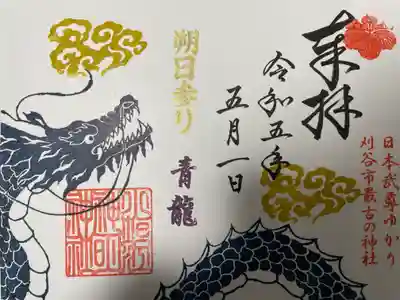 日本武尊ゆかり
刈谷市最古の神社
奉拝
令和五年
五月一日
朔日参り
青龍
小垣江
神明
神社